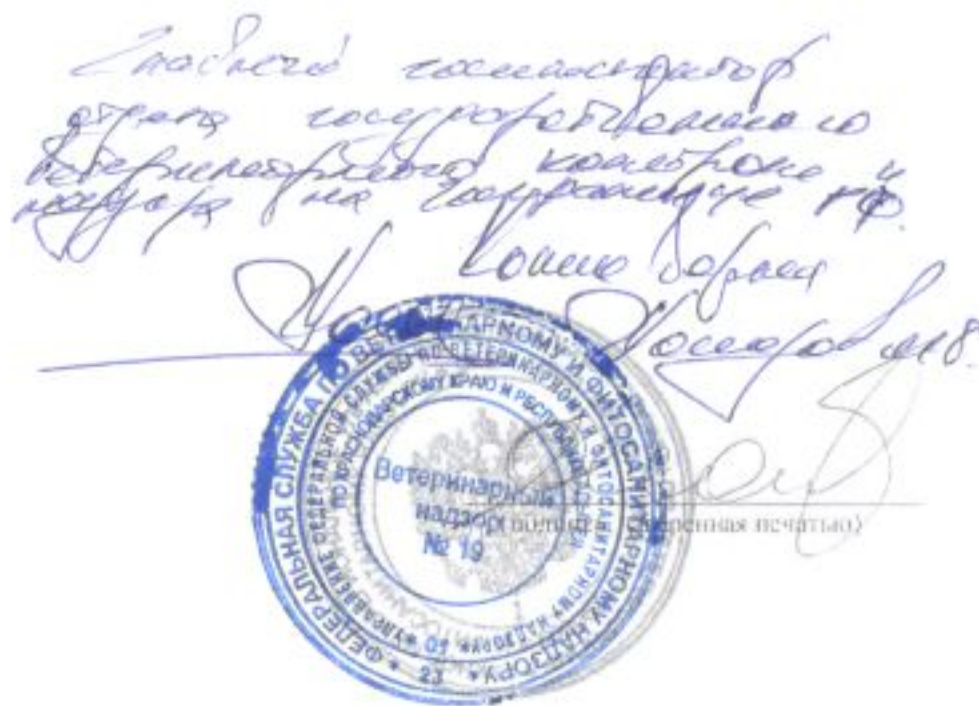 Главный госинспектор
отдела государственного
ветеринарного контроля и
надзора на Госгранице РФ.
ФЕДЕРАЛЬНАЯ СЛУЖБА ПО ВЕТЕРИНАРНОМУ И ФИТОСАНИТАРНОМУ НАДЗОРУ
УПРАВЛЕНИЕ ФЕДЕРАЛЬНОЙ СЛУЖБЫ ПО ВЕТЕРИНАРНОМУ И ФИТОСАНИТАРНОМУ НАДЗОРУ
ПО КРАСНОДАРСКОМУ КРАЮ И РЕСПУБЛИКЕ АДЫГЕЯ
Ветеринарный
надзор
№ 19
23 01
заверенная печатью)